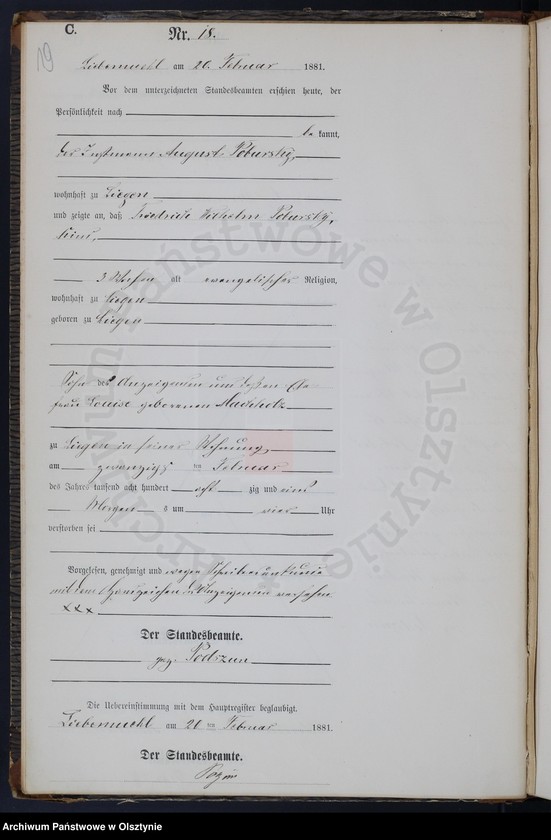 19
C.
Nr. 18.
Liebemuehl am 20. Februar 1881.
Vor dem unterzeichneten Standesbeamten erschien heute, der
Persönlichkeit nach
be kannt,
der Instmann August Poburski,
wohnhaft zu Liegen
und zeigte an, daß Friedrich Wilhelm Poburski,
Kind,
3 Wochen alt evangelischer Religion,
wohnhaft zu Liegen
geboren zu Liegen
Sohn des Anzeigenden und dessen Ehe
frau Louise geborenen
zu Liegen in seiner Wohnung,
am zwanzigsten Februar
des Jahres tausend acht hundert acht zig und eins
Morgens um vier Uhr
verstorben sei
Vorgelesen, genehmigt und wegen Schreibensunkunde
mit dem Handzeichen des Anzeigenden versehen
xxx
Der Standesbeamte.
gez. Podszun
Die Uebereinstimmung mit dem Hauptregister beglaubigt.
Liebemuehl am 20 ten Februar 1881.
Der Standesbeamte.
Archiwum Państwowe w Olsztynie
Archiwum Państwowe w Olsztynie